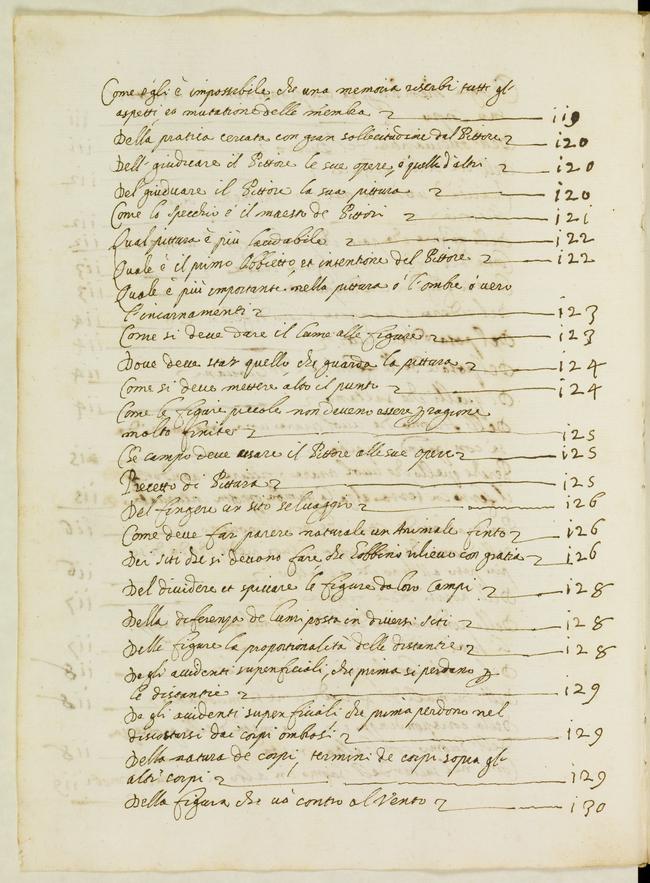 Come egli è impossibile che una memoria riserbi tutti gl'
aspetti, et mutatione delle membra 119
Della pratica cercata con gran sollecitudine dal Pittore 120
Dell' giudicare il Pittore le sue opere, ò quelle d'altri 120
Del giudicare il Pittore la sua pittura 120
Come lo specchio è il maestro de Pittori 121
Qual pittura è più laudabile 122
Quale è il primo Obbietto, et intentione del Pittore 122
Quale è più importante nella pittura ò l'ombre ò vero
l'incarnamenti 123
Come si deve dare il lume alle figure 123
Dove deve star quello che guarda la pittura 124
Come si deve mettere alto il punto 124
Come le figure piccole non deveno essere p ragione
molto finite 125
Che campo deve usare il Pittore alle sue opere 125
Precetto di Pittura 125
Del fingere un sito selvaggio 126
Come deve far parere naturale un Animale finto 126
Dei siti che si devono fare che habbino rilievo con gratia 126
Del dividere et spiccare le figure da loro Campi 128
Della diferenza de lumi posta in diversi siti 128
Delle figure la proportionalità delle distantie 128
Da gli accidenti superficiali, che prima si perdono p
le distantie 129
Da gli accidenti superficiali che prima perdono nel
discostarsi dai corpi ombrosi 129
Della natura de corpi, termini de corpi sopra gl'
altri corpi 129
Della figura che và contro al Vento 130